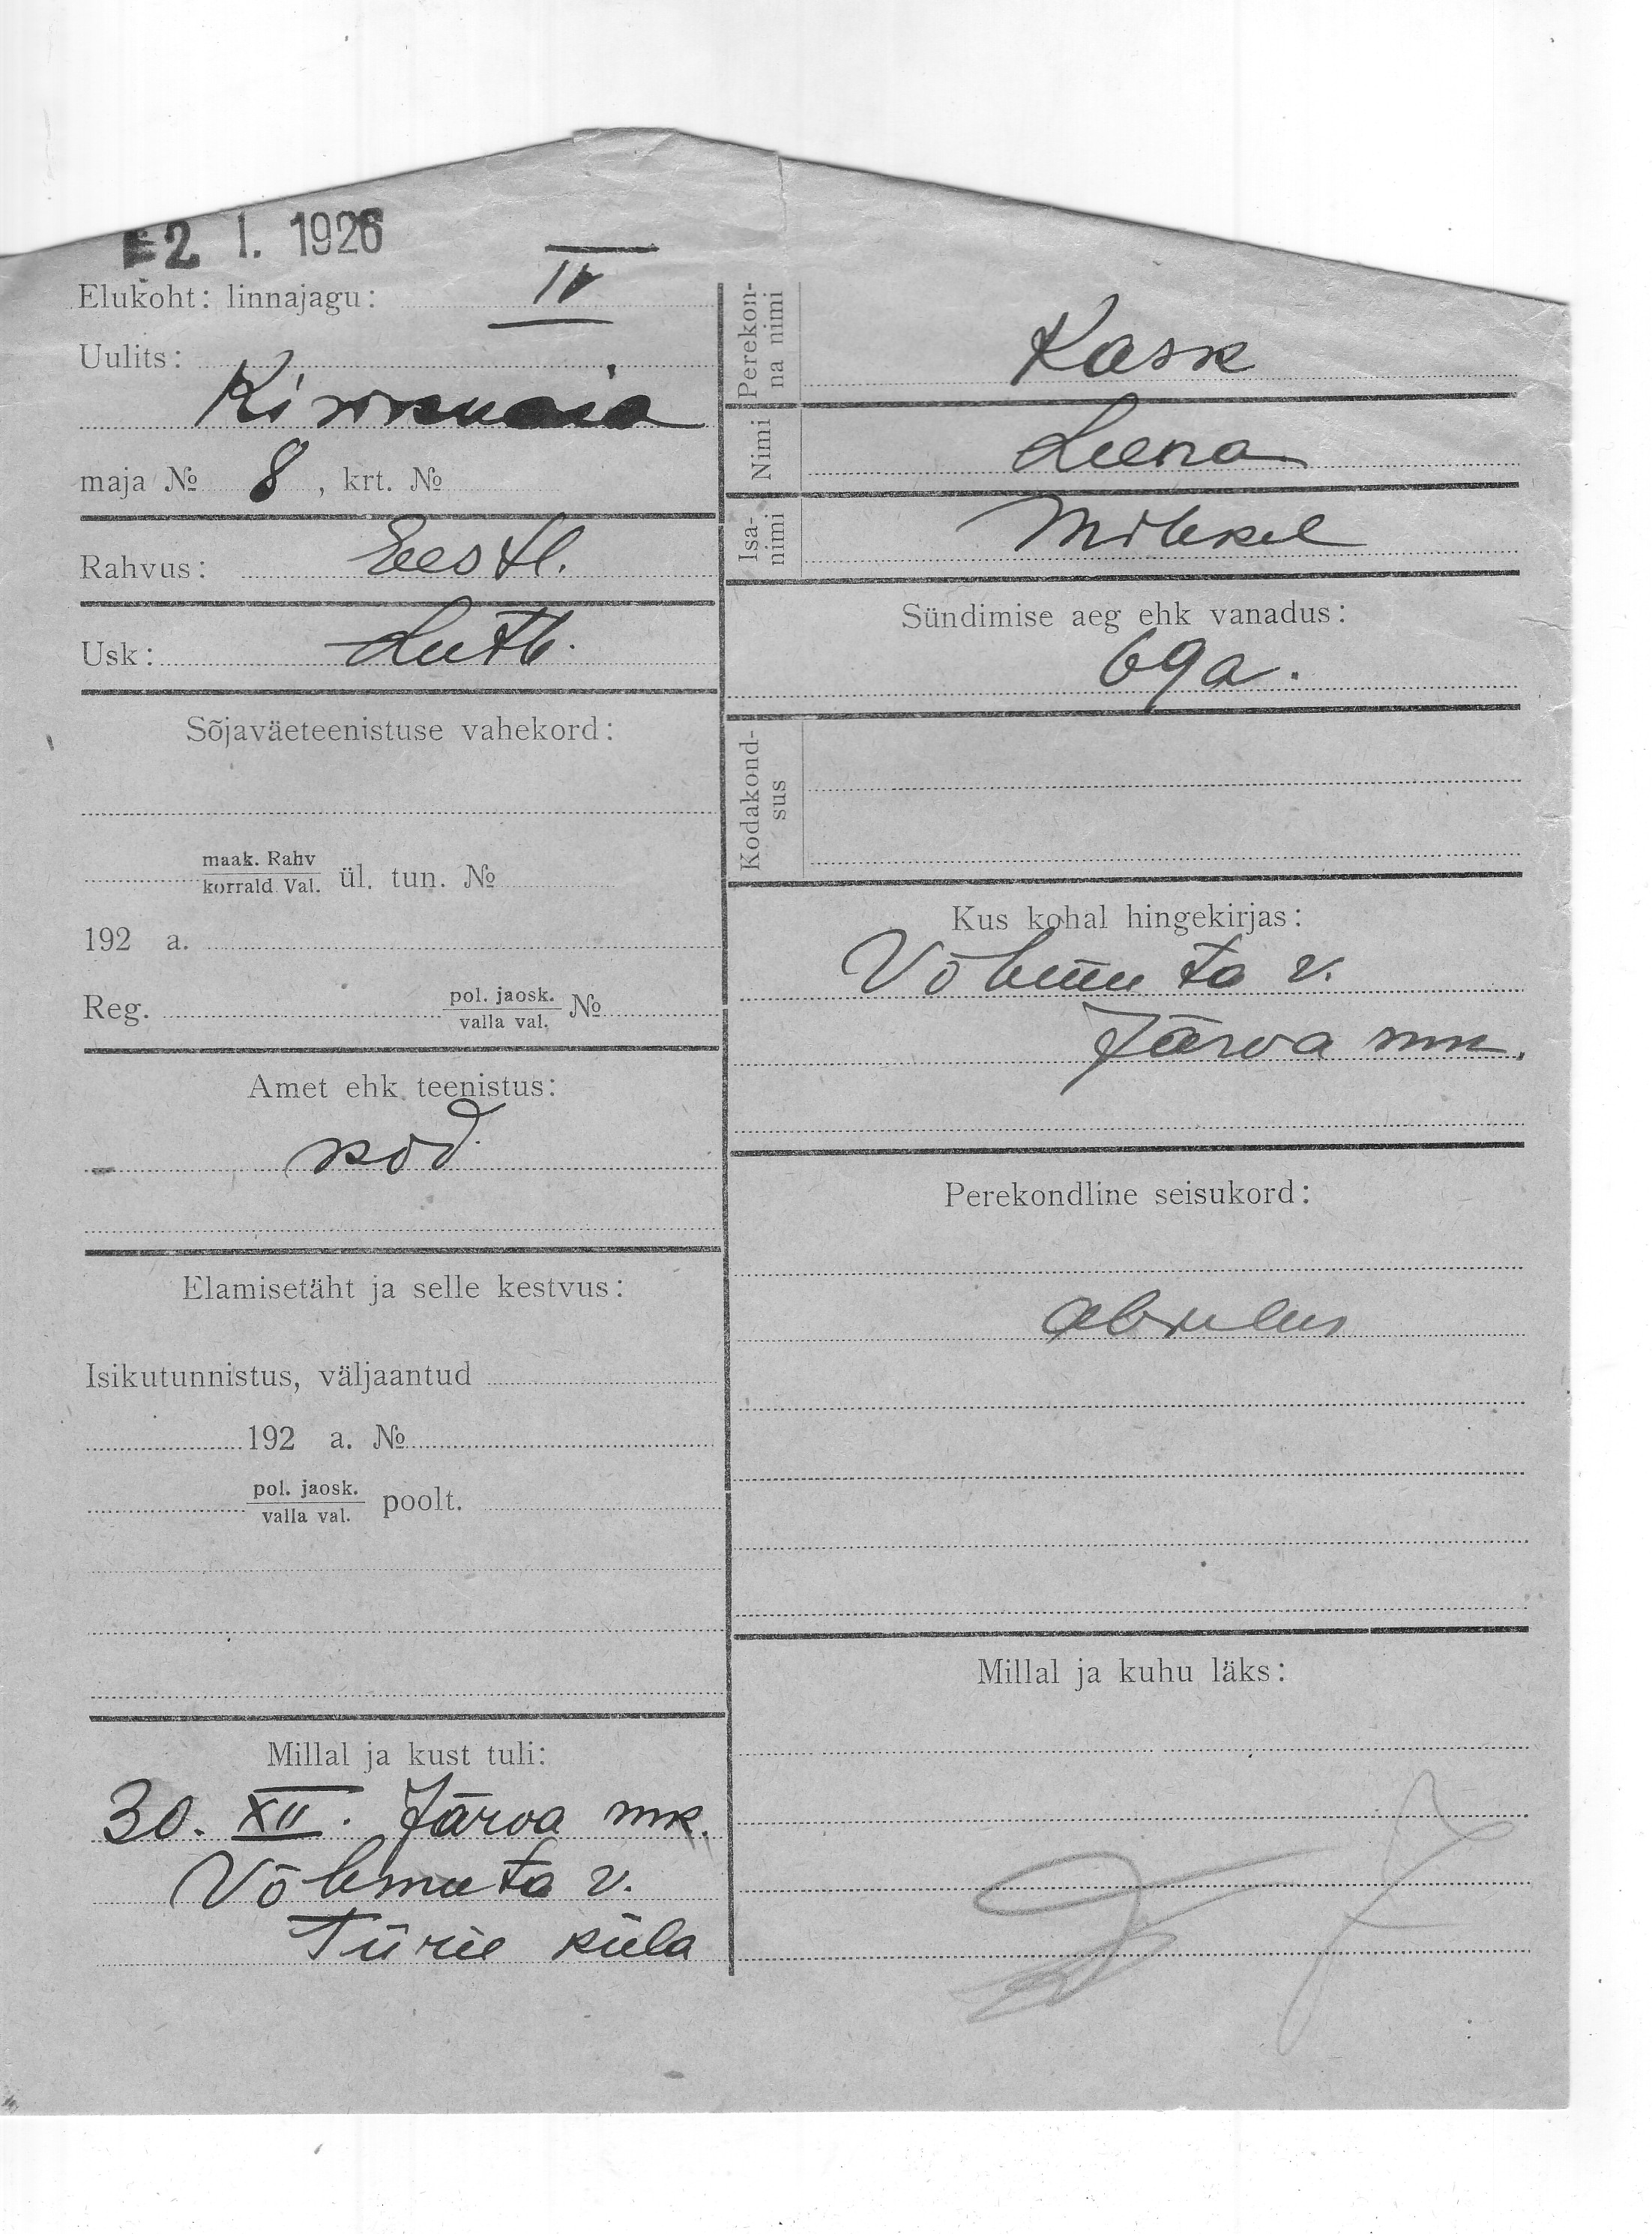 2. I. 1926
Elukoht: linnajagu: IV
Uulits:
maja № 8, krt. №
Rahvus: Eestl.
Usk: Luth.
Sõjaväeteenistuse vahekord:
maak. Rahv
korrald. Val. ül. tun. №
192 a.
Reg. pol. jaosk. №
valla val.
Amet ehk teenistus:
kod.
Elamisetäht ja selle kestvus:
Isikutunnistus, väljaantud
192 a. №
pol. jaosk. poolt.
valla val.
Millal ja kust tuli:
30. XII. Järva mk.
Võhmuta v.
küla
Perekon-
na nimi Kask
Nimi Leena
Isa-
nimi Mihkel
Sündimise aeg ehk vanadus:
69a.
Kodakond-
sus
Kus kohal hingekirjas:
Võhmuta v.
Järva mk.
Perekondline seisukord:
abielus
Millal ja kuhu läks: